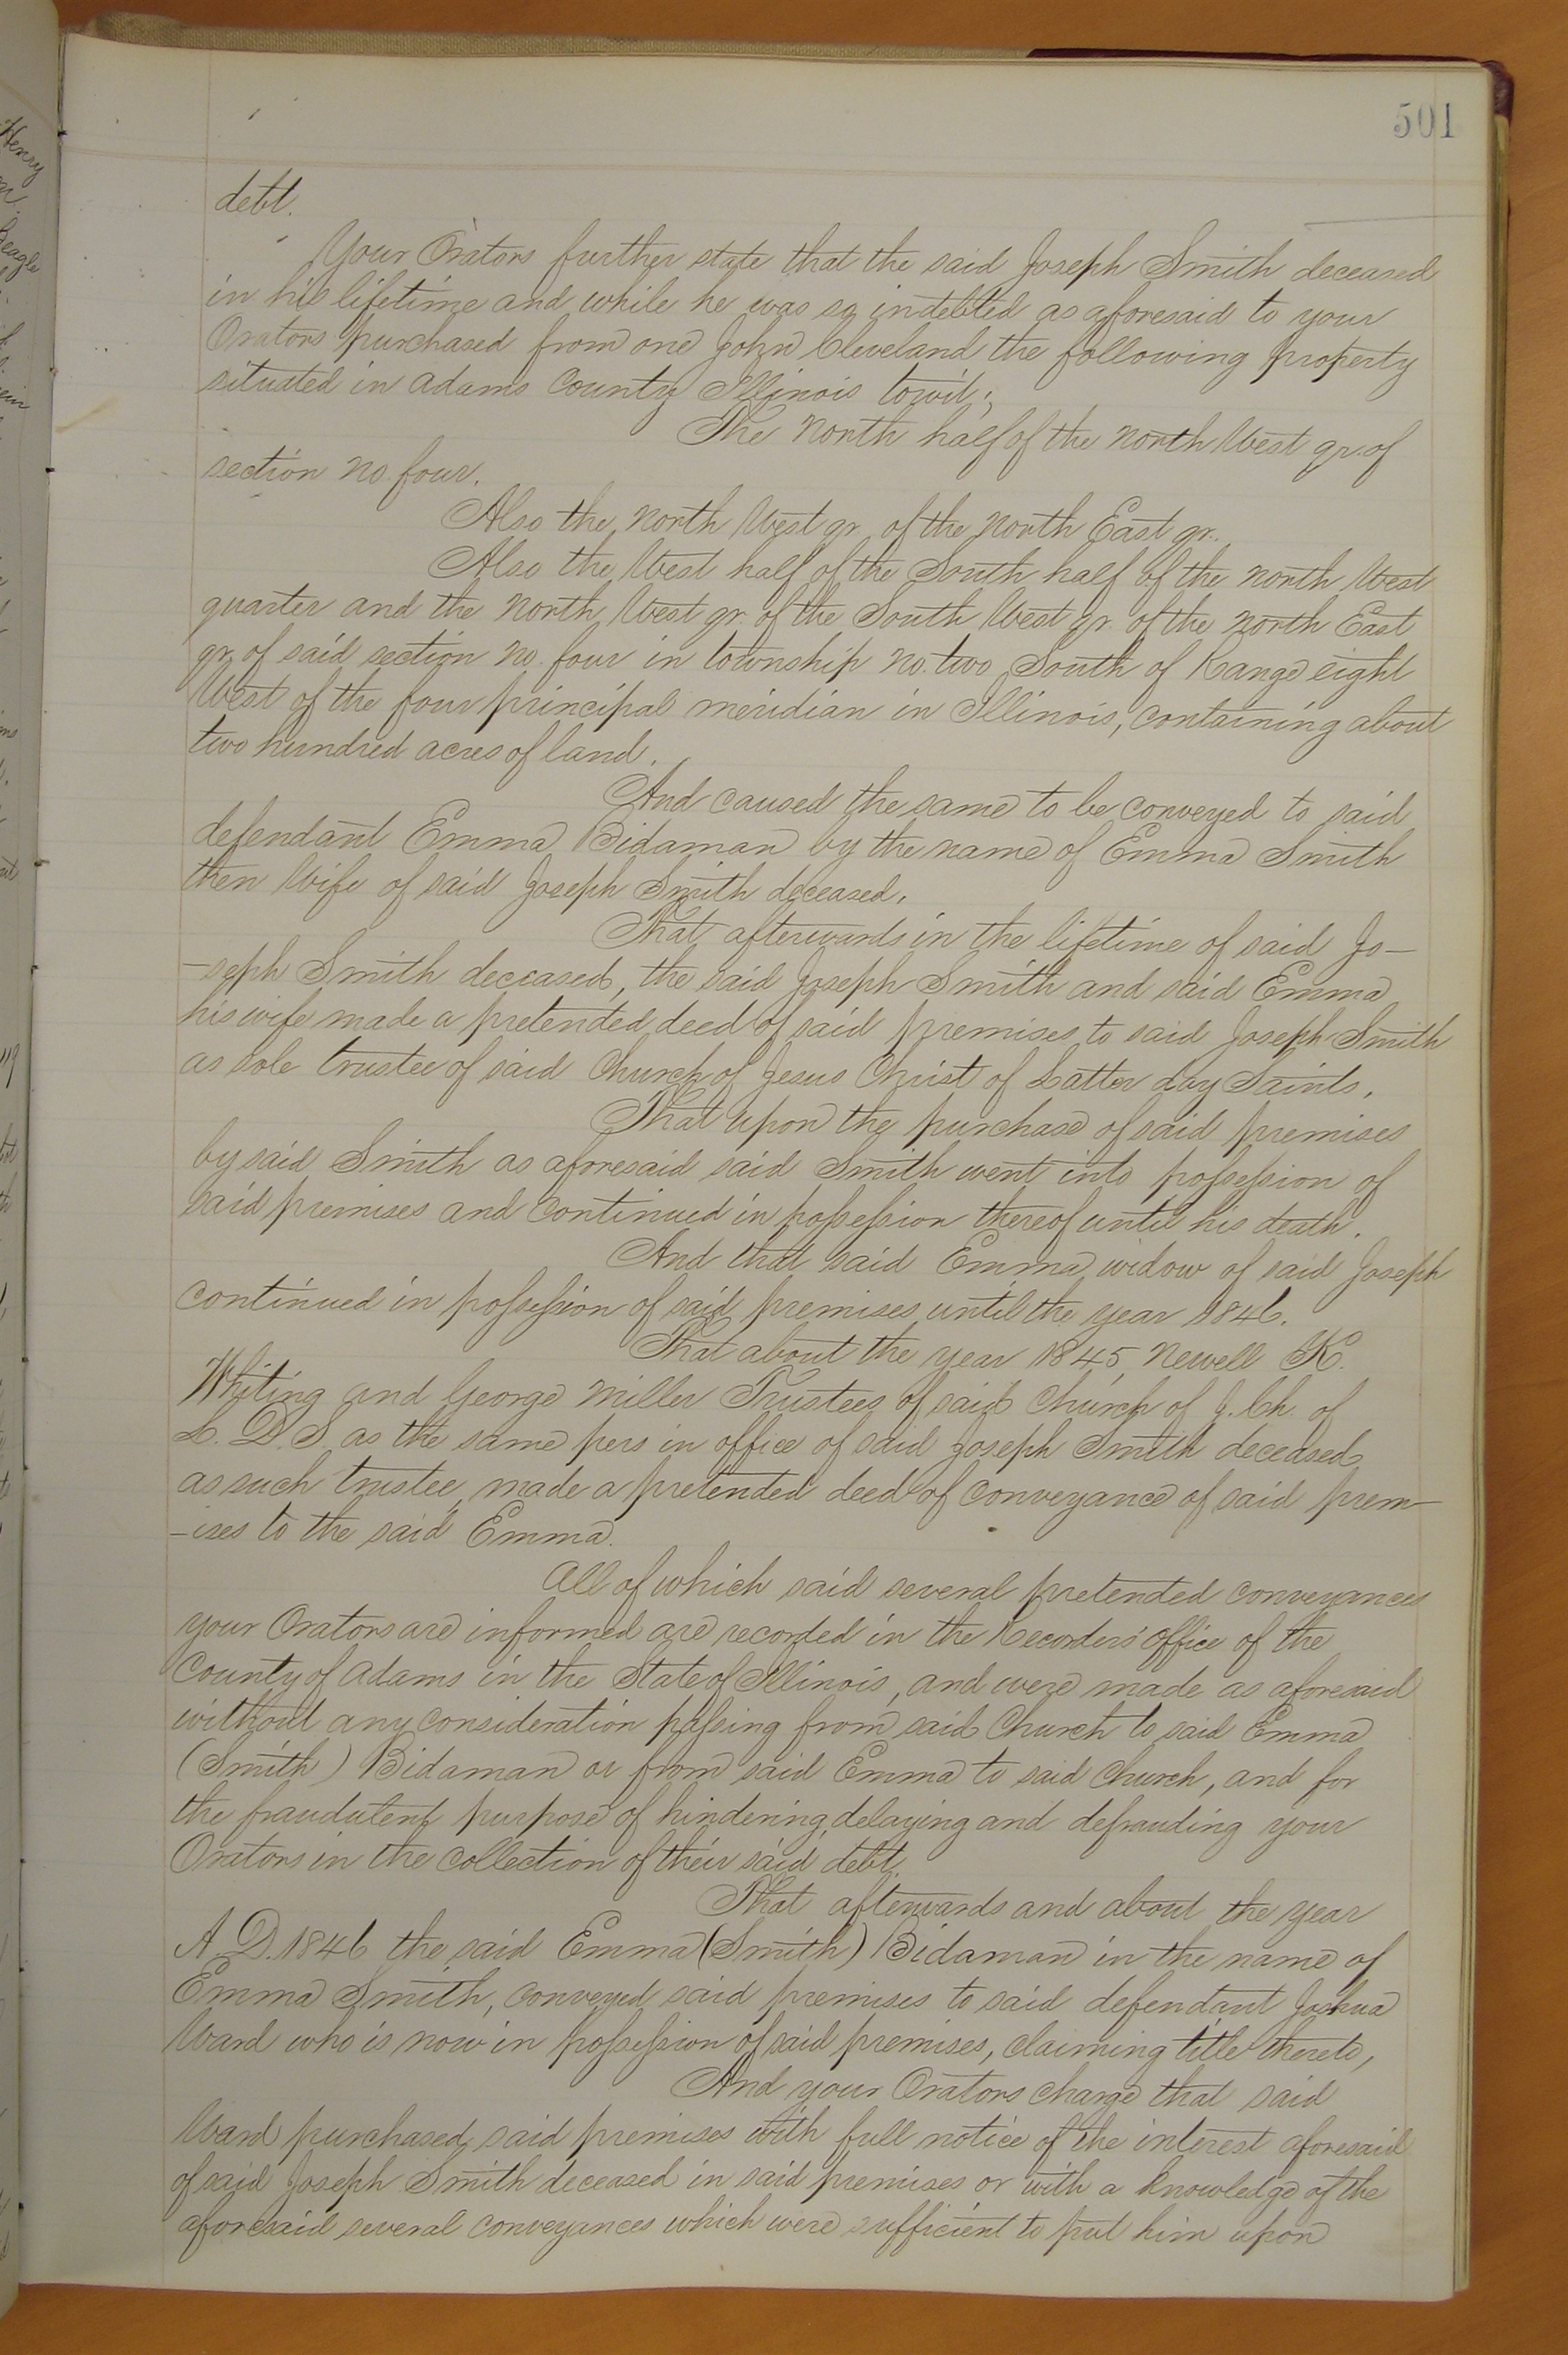 501
debt.
Your Orators further state that the said Joseph Smith deceased
in his lifetime and while he was so indebted as aforesaid to your
Orators purchased from one John Cleveland the following property
situated in Adams County Illinois towit;
The North half of the North West qr. of
section no four.
Also the North West qr. of the North East qr.
Also the West half of the South half of the North West
quarter and the North West qr. of the South West qr. of the North East
qr. of said section no. four in township no. two South of Range eight
West of the four principal meridian in Illinois, containing about
two hundred acres of land.
And caused the same to be conveyed to said
defendant Emma Bidaman by the name of Emma Smith
then Wife of said Joseph Smith deceased.
That afterwards in the lifetime of said Jo-
-seph Smith deceased, the said Joseph Smith and said Emma
his wife made a pretended deed of said premises to said Joseph Smith
as sole trustee of said Church of Jesus Christ of Latter day Saints.
That upon the purchase of said premises
by said Smith as aforesaid said Smith went into possession of
said premises and continued in possession thereof until his death.
And that said Emma widow of said Joseph
continued in possession of said premises until the year 1846.
That about the year 1845, Newell K.
Whiting and George Miller Trustees of said Church of J. Ch. of
L. D. S as the same pers in office of said Joseph Smith deceased
as such trustee, made a pretended deed of conveyance of said prem-
-ises to the said Emma.
All of which said several pretended conveyances
your Orators are informed are recorded in the Recorders' office of the
County of Adams in the State of Illinois, and were made as aforesaid
without any consideration passing from said Church to said Emma
(Smith) Bidaman or from said Emma to said Church, and for
the fraudulent purpose of hindering, delaying and defrauding your
Orators in the collection of their said debt.
That afterwards and about the year
A. D. 1846 the said Emma (Smith) Bidaman in the name of
Emma Smith, conveyed said premises to said defendant Joshua
Ward who is now in possession of said premises, claiming title thereto,
And your Orators charge that said
Ward purchased said premises with full notice of the interest aforesaid
of said Joseph Smith deceased in said premises or with a knowledge of the
aforesaid several conveyances which were sufficient to put him upon